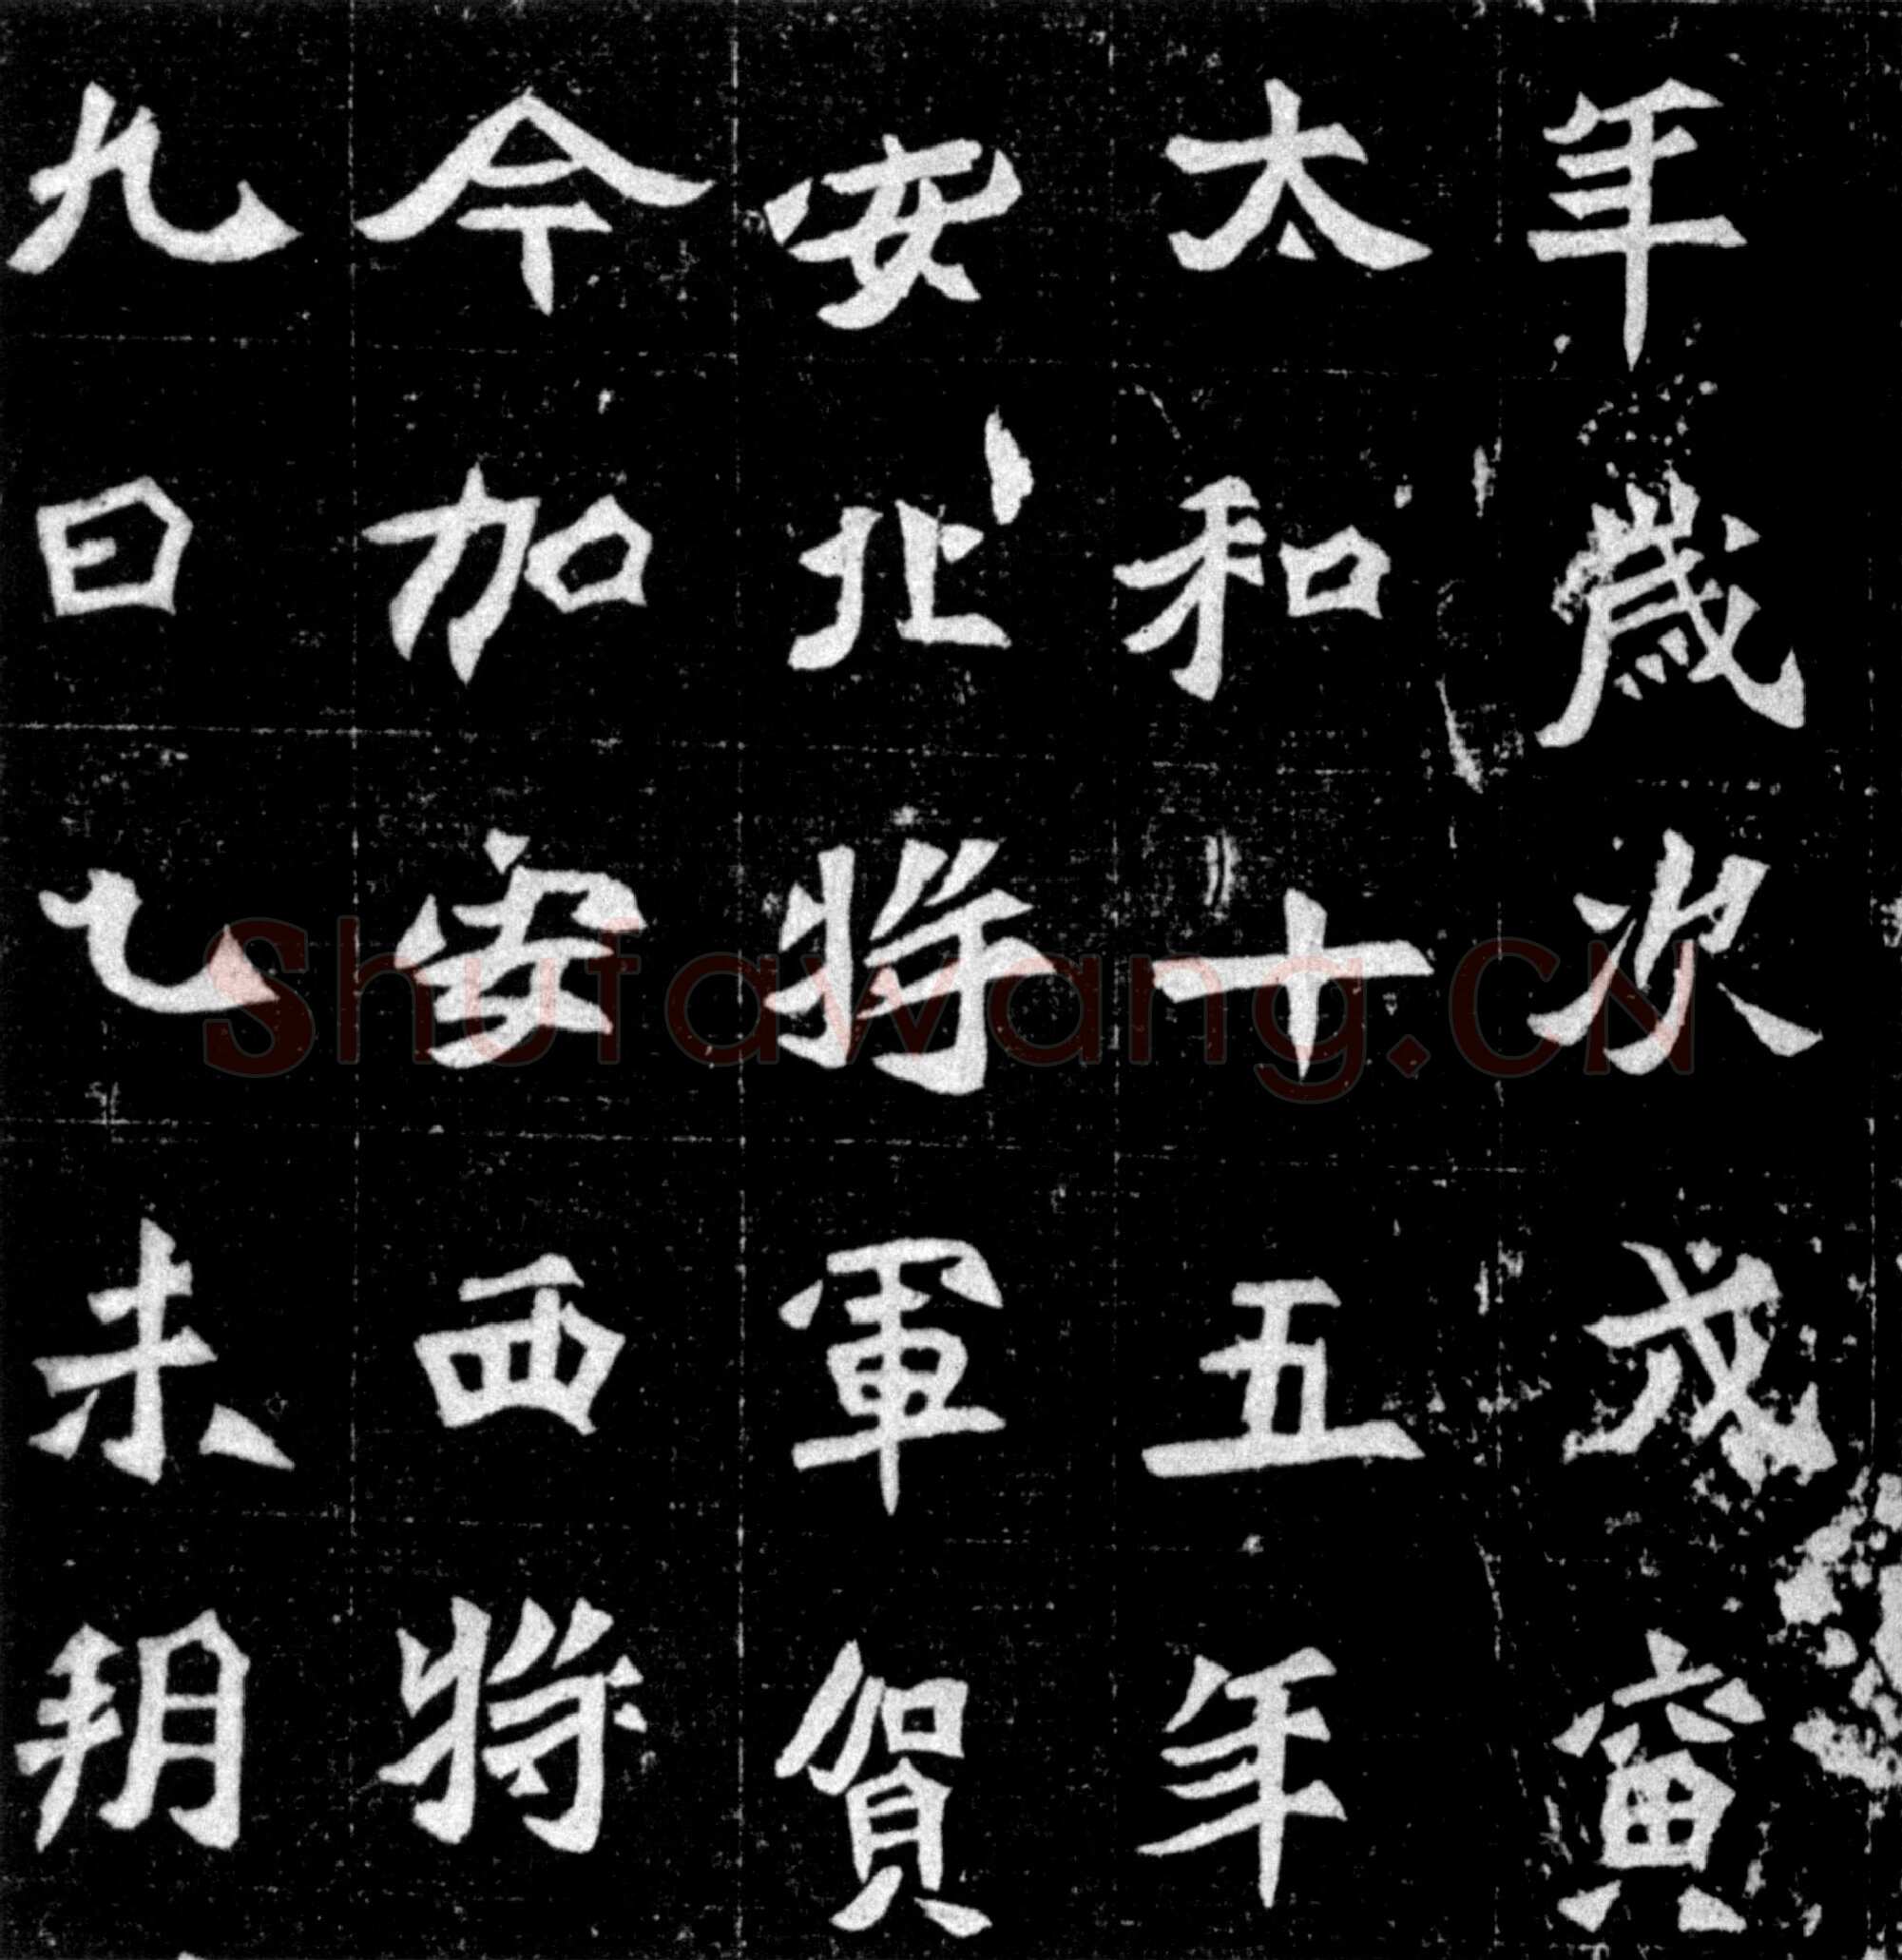 年歲次戊寅
太和十五年
安北將軍賀
今加安西將
九日乙未朔
Shufawang.CN